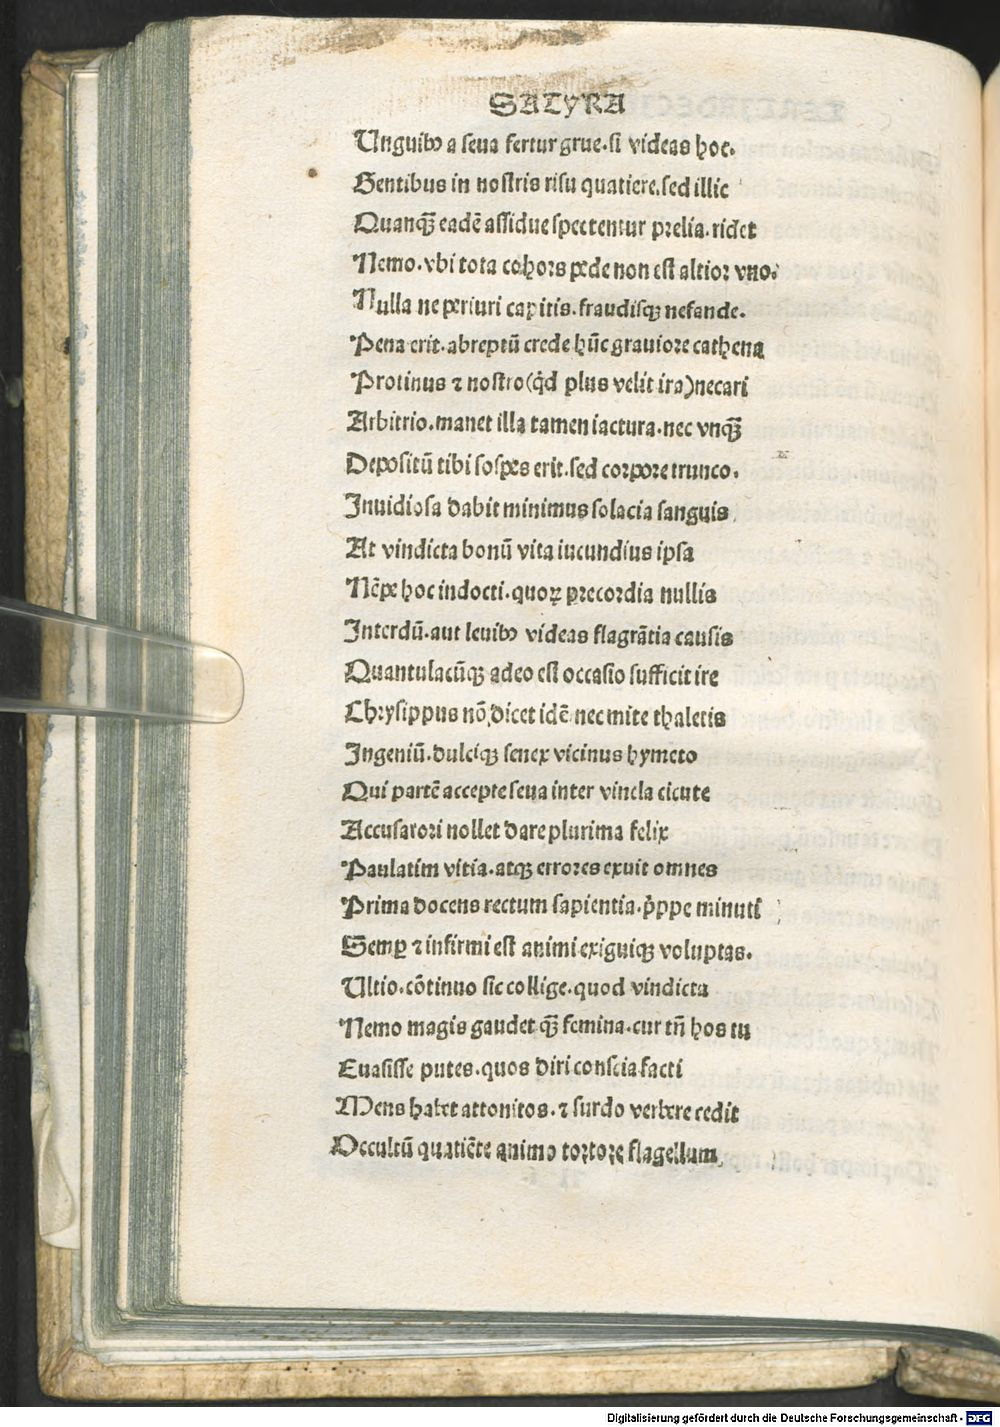 SATyRA
Unguibꝰ a seua fertur grue.si videas hoc.
Gentibus in nostris risu quatiere.sed illic
Quanqȝ̃ eadē assidue spectentur prelia.ridet
Nemo.vbi tota cohors pede non est altior vno.
Nulla ne periuri capitis.fraudisqȝ nefande.
Pena erit.abreptū crede hūc grauiore cathena
Protinus ⁊ nostro(qd̓ plus velit ira)necari
Arbitrio.manet illa tamen iactura.nec vnqȝ̃
Depositū tibi sospes erit.sed corpore trunco.
Inuidiosa dabit minimus solacia sanguis
At vindicta bonū vita iucundius ipsa
Nēpe hoc indocti.quoꝝ precordia nullis
Interdū.aut leuibꝰ videas flagrātia causis
Quantulacūqȝ adeo est occasio sufficit ire
Chrysippus nō dicet idē nec mite thaletis
Ingeniū.dulciqȝ senex vicinus hymeto
Qui partē accepte seua inter vincla cicute
Accusatori nollet dare plurima felix
Paulatim vitia.atqȝ errores exuit omnes
Prima docens rectum sapientia.p̄ppe minuti
Semꝑ ⁊ infirmi est animi exiguiqȝ voluptas.
Ultio.cōtinuo sic collige.quod vindicta
Nemo magis gaudet qȝ̃ femina.cur tn̄ hos tu
Euasisse putes.quos diri conscia facti
Mens habet attonitos.⁊ surdo verbere cedit
Occultū quatiēte animo tortore flagellum
Digitalisierung gefördert durch die Deutsche Forschungsgemeinschaft - DFG